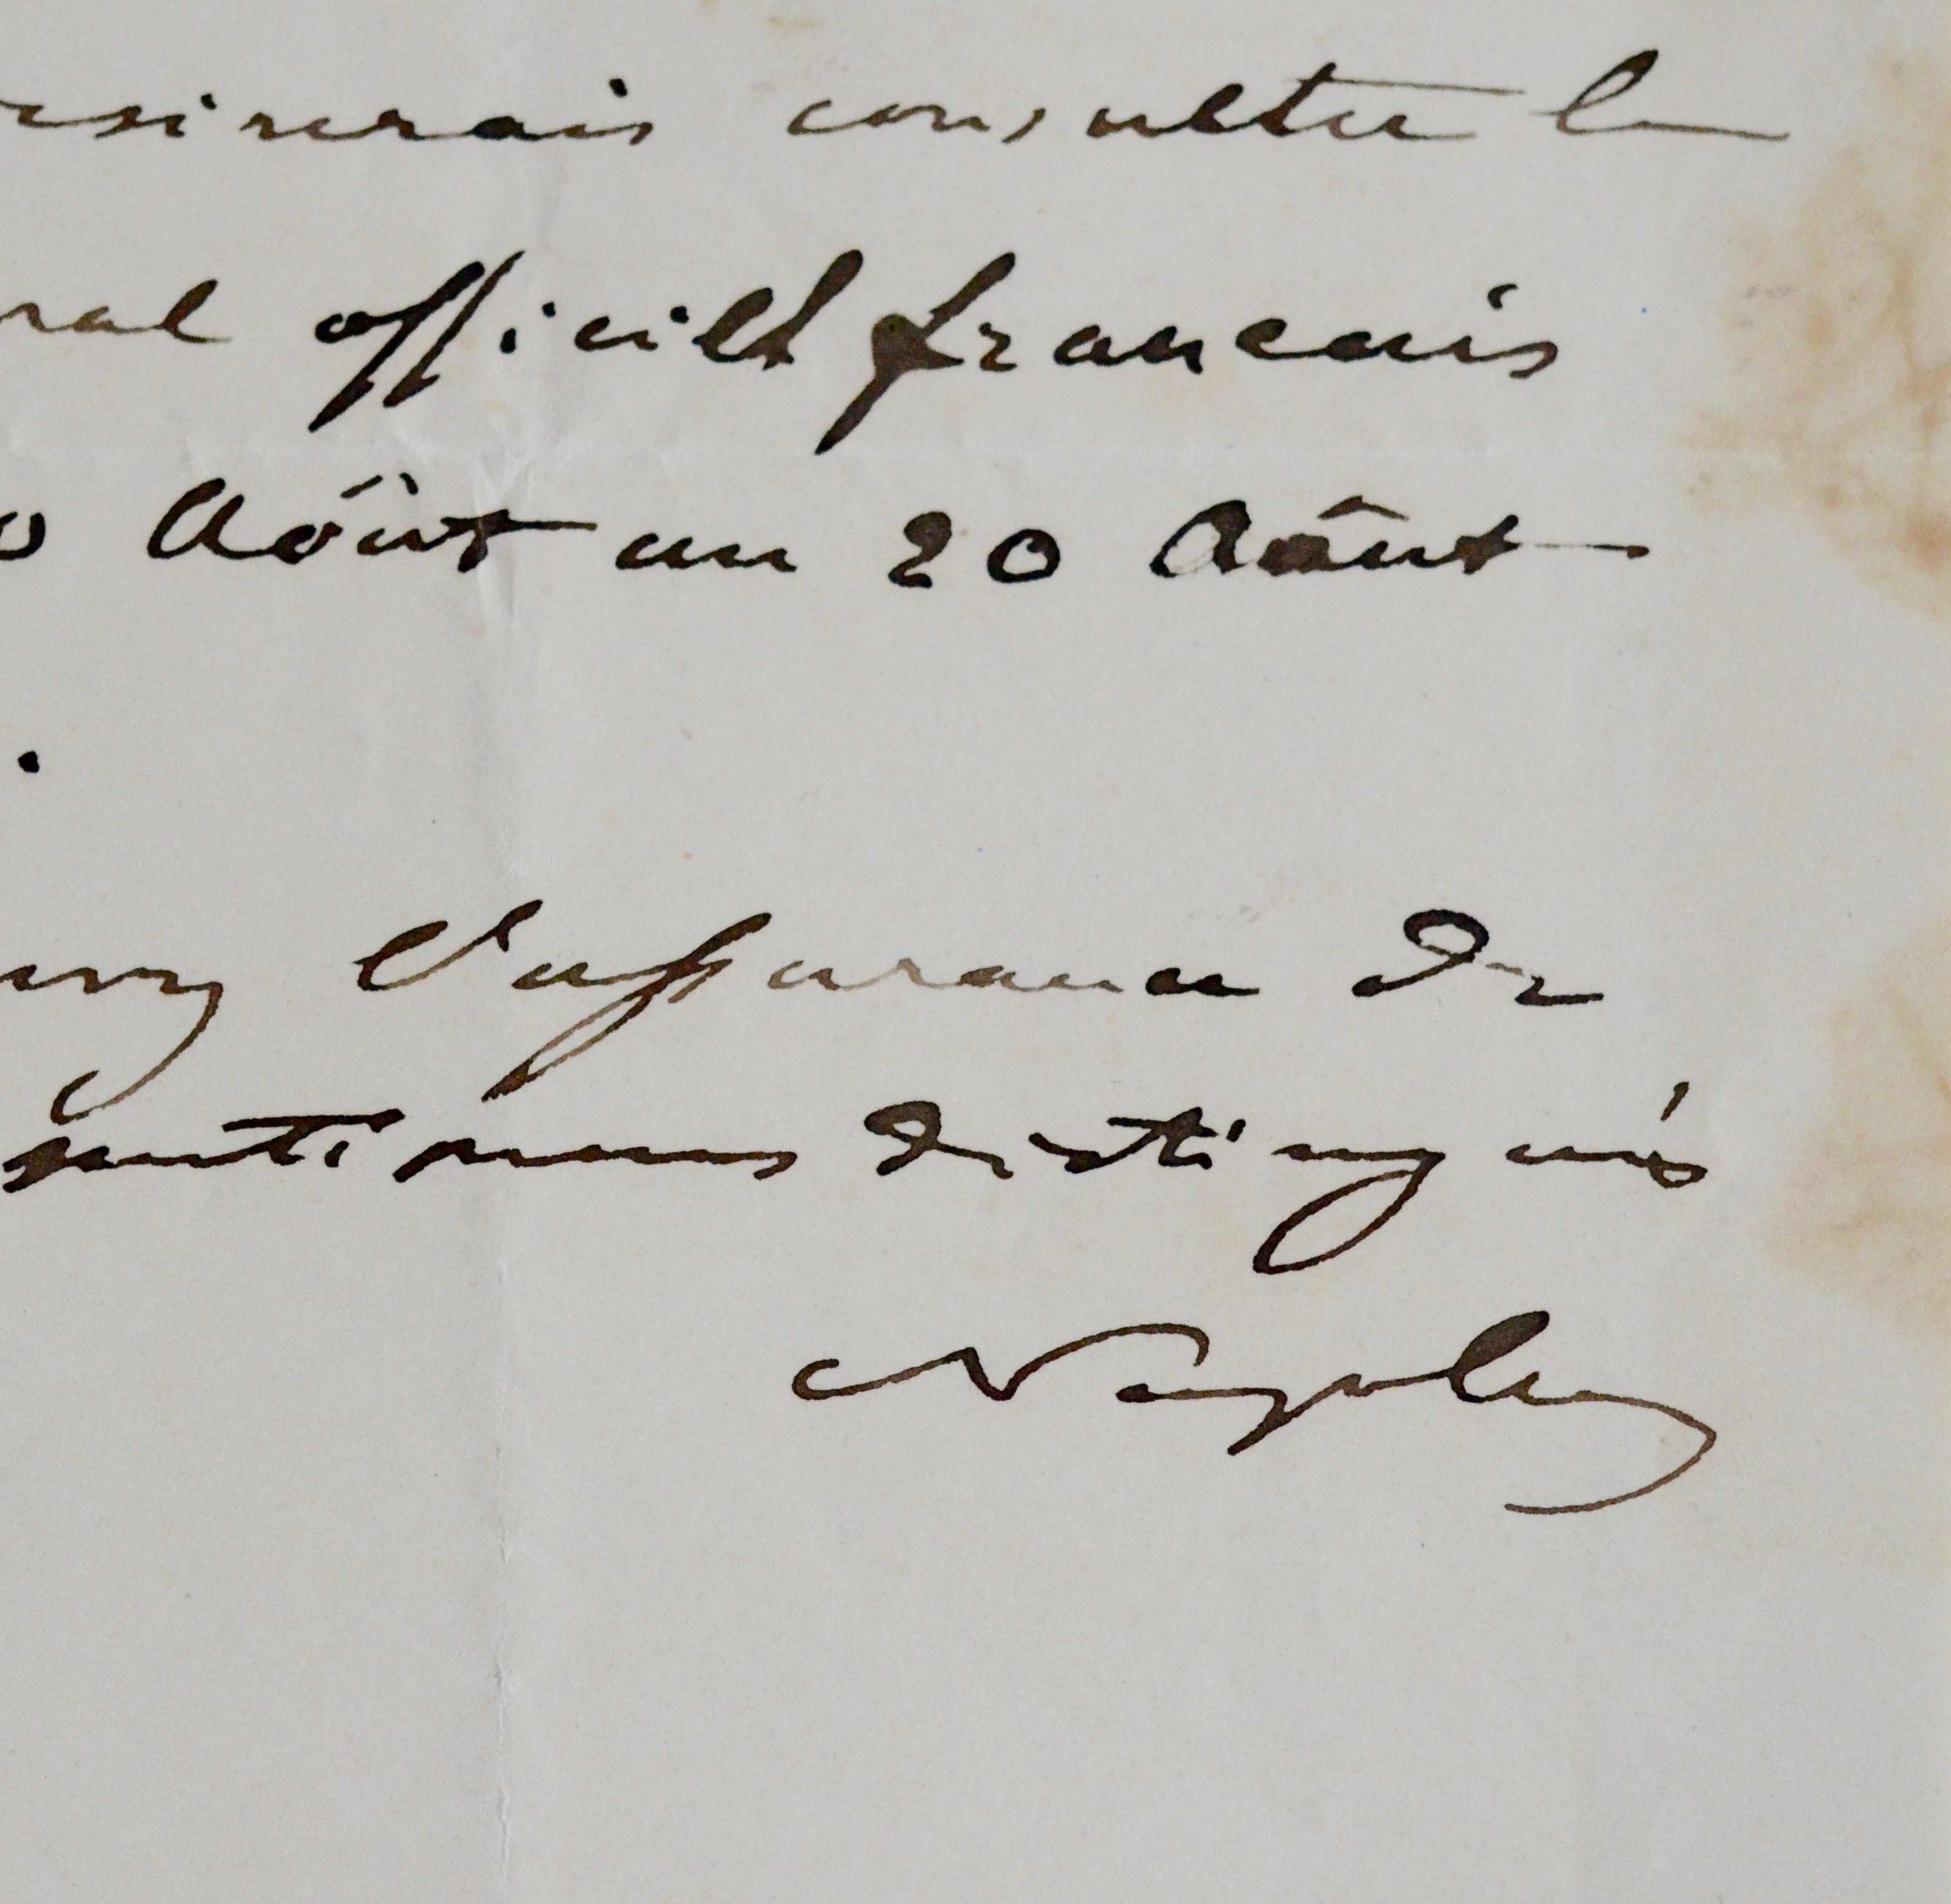 esirerais consulter le
ral officiel français
0 Août au 20 Août
.
l'assurance de
sentimens distingués
Napoléon